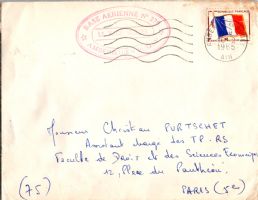 BASE AERIENNE N°
RÉPUBLIQUE FRANÇAISE
1965
AIN
Monsieur Christian PURTSCHET
Assistant chargé des TP - RS
Faculté de Droit et des Sciences Economiques
12, Place du Panthéon
(75)
PARIS (5e)